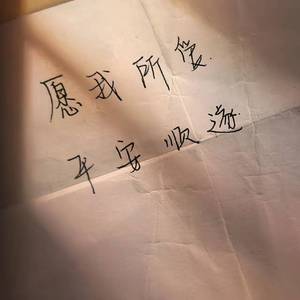 愿我所爱
平安顺遂